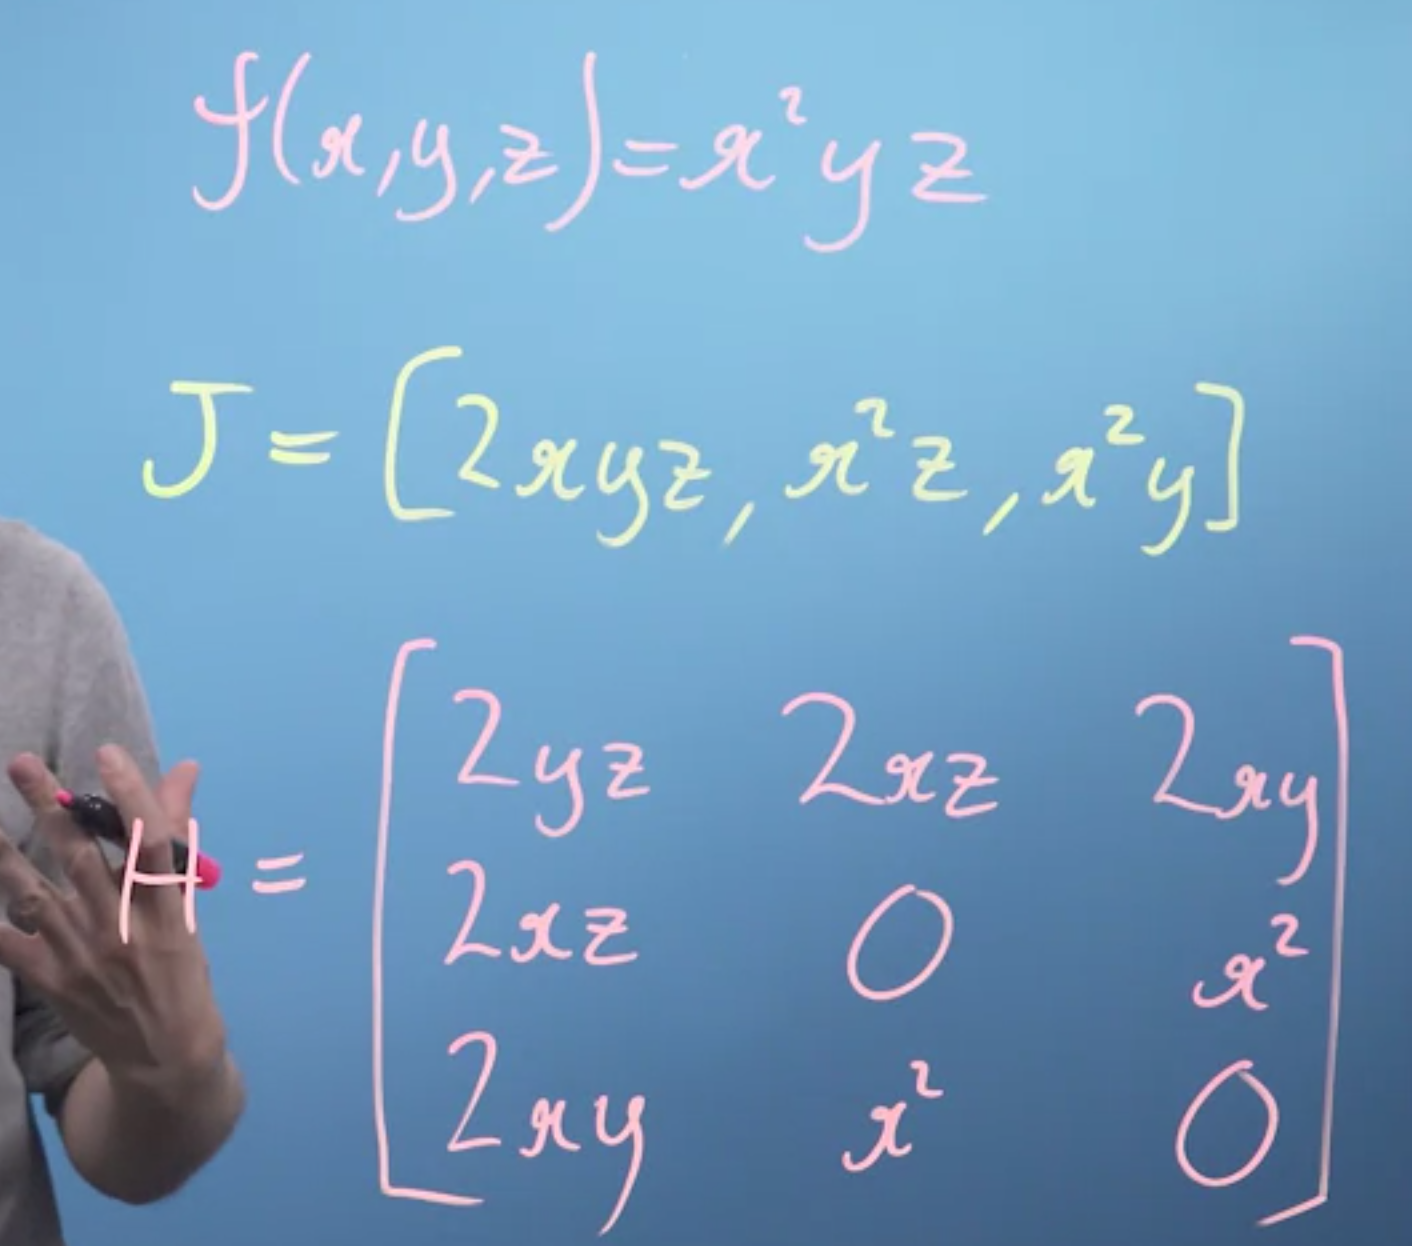 f(x,y,z)=x²yz
J=[2xyz, x²z, x²y]
H = [2yz 2xz 2xy
2xz 0 x²
2xy x² 0]